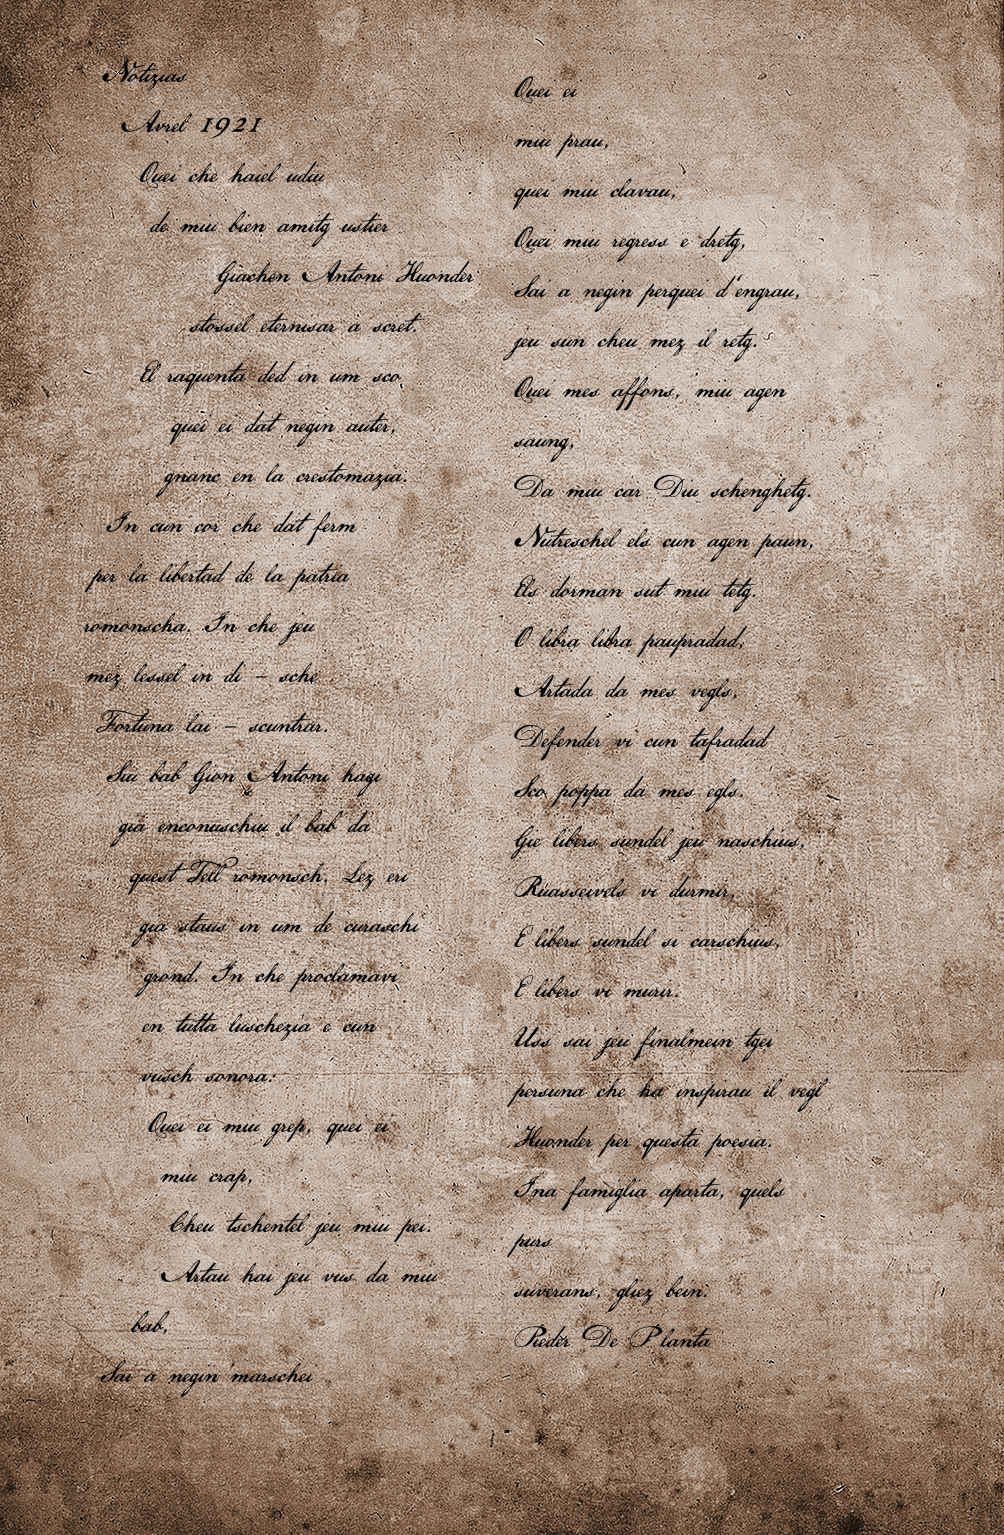 Notizias
Avrel 1921
Quei che haiel udiu
de miu bien amitg ustier
Giachen Antoni Huonder
stossel eternisar a scret.
El raquenta ded in um sco
quei ei dat negin auter,
gnanc en la crestomazia.
In cun cor che dat ferm
per la libertad de la patria
romonscha. In che jeu
mez lessel in di - sche
Fortuna lai - scuntrar.
Siu bab Gion Antoni hagi
gia enconuschiu il bab da
quest Tell romonsch. Lez eri
gia staus in um de curaschi
grond. In che proclamavi
en tutta luschezia e cun
vusch sonora:
Quei ei miu grep, quei ei
miu crap,
Cheu tschentel jeu miu pei.
Artau hai jeu vus da miu
bab,
Sai a negin marschei
Quei ei
miu prau,
quei miu clavau,
Quei miu regress e dretg,
Sai a negin perquei d'engrau,
jeu sun cheu mez il retg.
Quei mes affons, miu agen
saung,
Da miu car Diu schenghetg.
Nutreschel els cun agen paun,
Els dorman sut miu tetg.
O libra libra paupradad,
Artada da mes vegls,
Defender vi cun tafradad
Sco poppa da mes egls.
Gie libers sundel jeu naschius,
Ruasseivels vi durmir,
E libers sundel si carschius,
E libers vi murir.
Uss sai jeu finalmein tgei
persuna che ha inspirau il vegl
Huonder per questa poesia.
Ina famiglia aparta, quels
purs
suverans, gliez bein.
Pieder De Planta